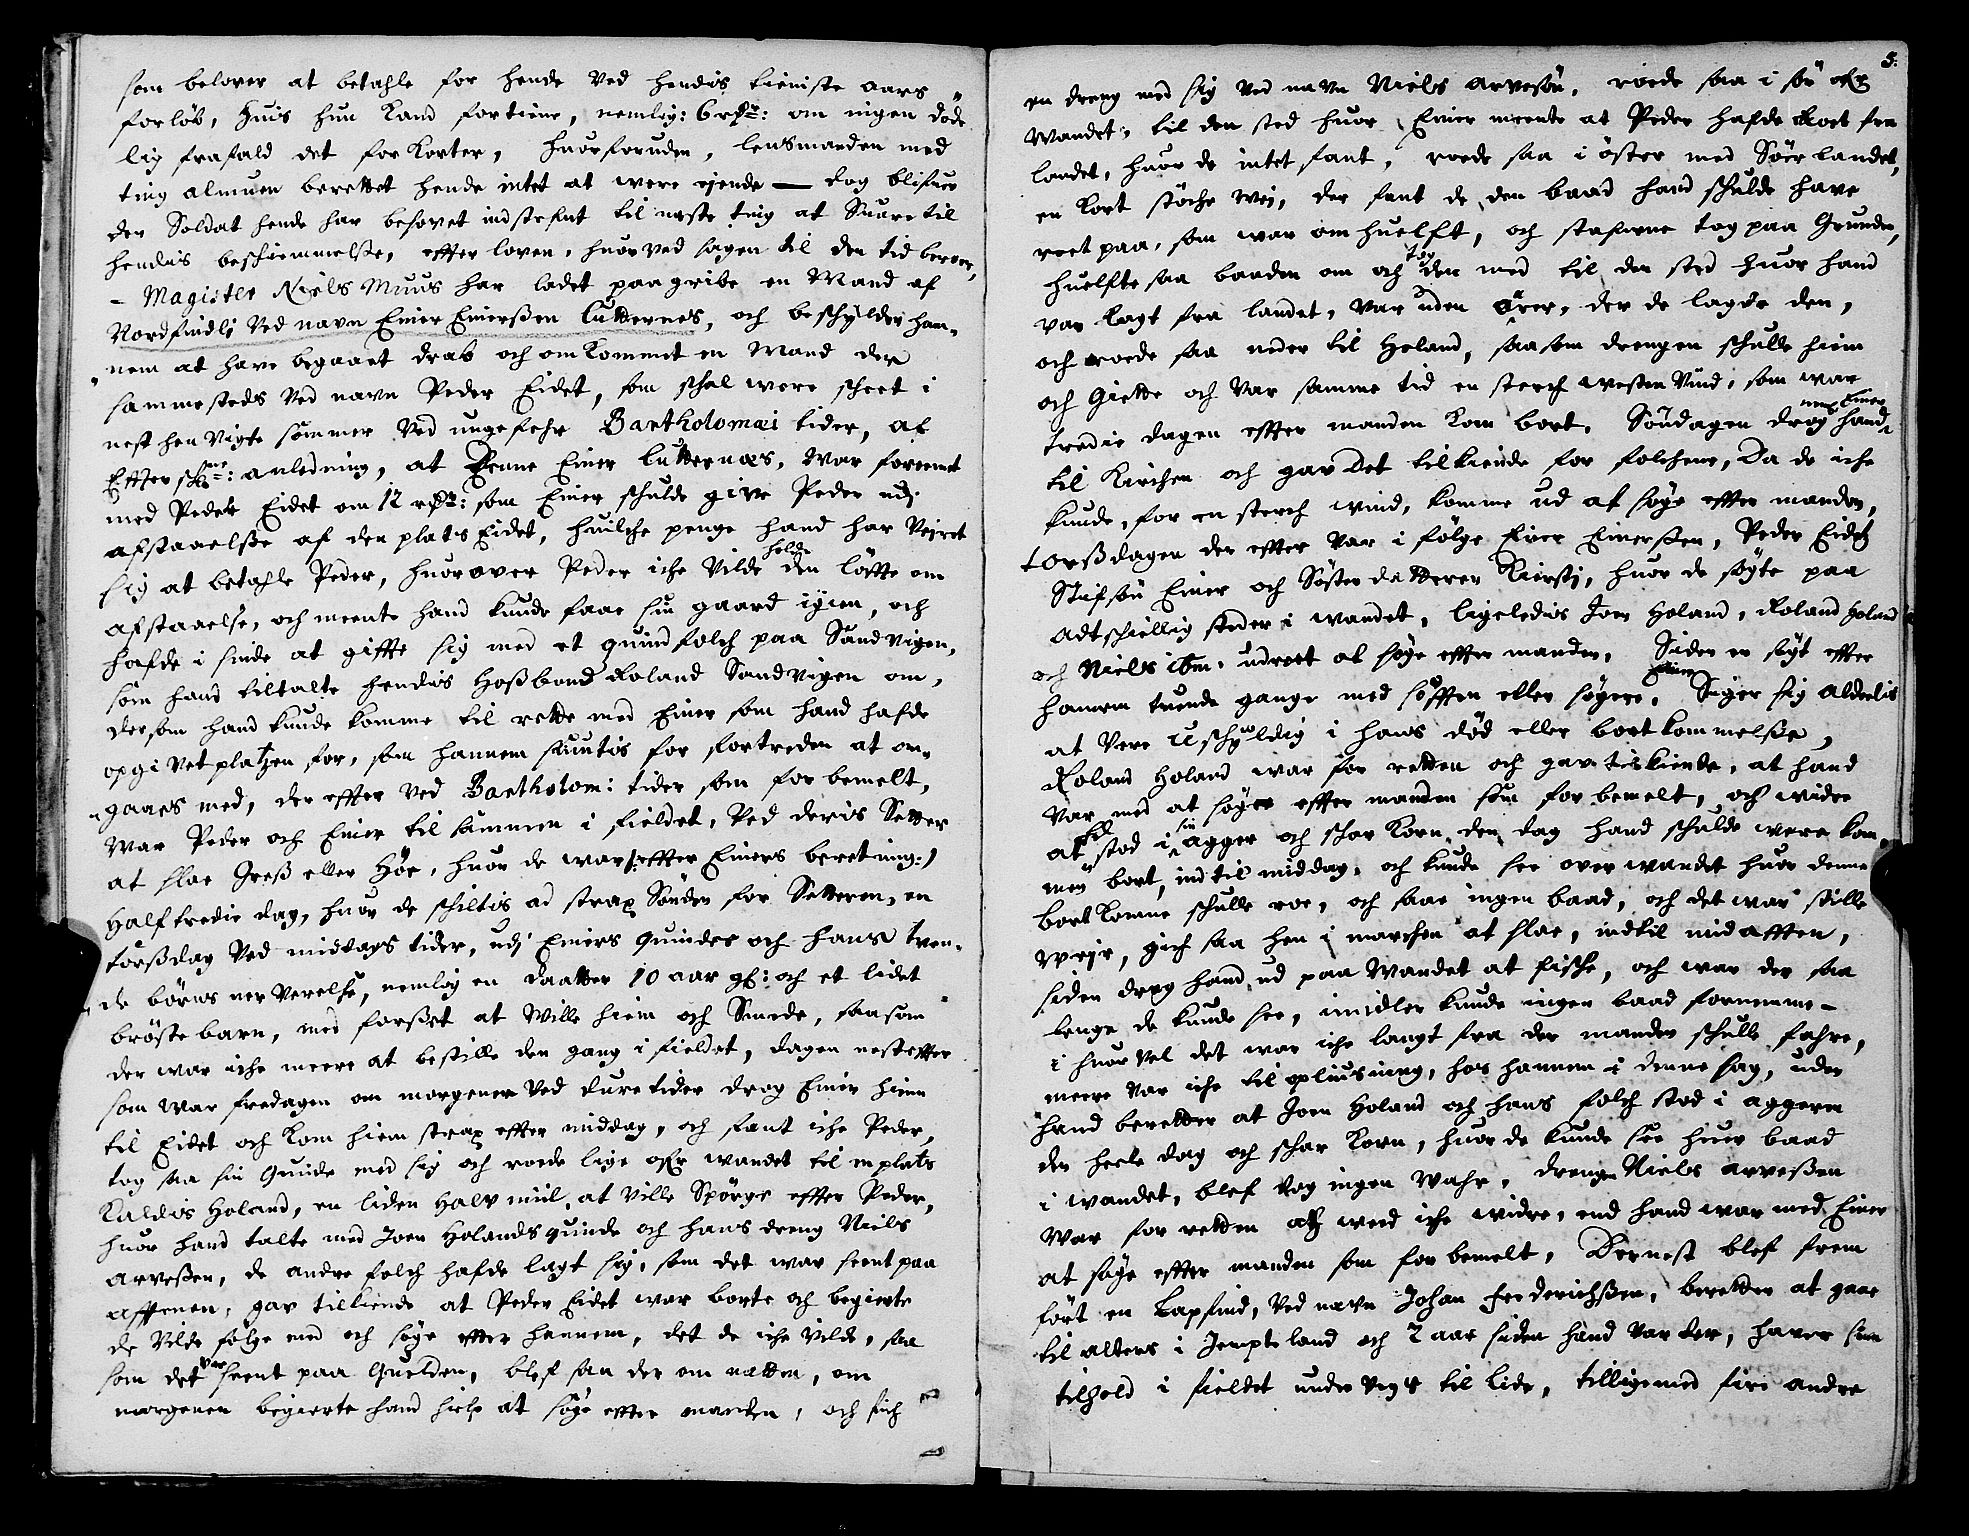 som belover at betahle for hende ved hendis tieniste aars
forløb, huis hun kand fortiene, nemlig: 6 rdr: om ingen døde
lig frafald det forkorter, huorforuden, lensmanden med
ting almuen berettet hende intet at were ejende — dog blifuer
den Soldat hende har besovet indstefnt til neste ting at Suare til
hendis beschiemmelse, effter loven, huorved sagen til den tid beroer,
- Magister Niels Muus har ladet paagribe en Mand af
Nordfindli ved navn Einer Einerssen Lutternes, och beschylder han-
nem at have begaaet drab och omkommet en Mand der
sammesteds ved navn Peder Eidet, som schal were scheet i
nest henvigte sommer ved ungefehr Bartholomæi tider, at
Effter anledning, at denne Einer Lutternæs, war foreenet
med Peder Eidet om 12 rdr: som Einer schulde give Peder udj
afstaaelsse af den plats Eidet, huilche penge hand har veiret
sig at betahle Peder, huorover Peder iche vilde holde den løffte om
afstaaelse, och meente hand kunde faae sin gaard igien, och
hafde i sinde at giffte sig med et quindfolch paa Sandvigen,
som hand tiltalte hendis Hossbond Roland Sandvigen om,
dersom hand kunde komme til rette med Einer som hand hafde
opgivet platzen for, som hannem siuntis for fortreden at om-
gaaes med, der effter ved Bartholom: tider som forbemelt,
war Peder och Einer tilsammen i fieldet, ved deris Setter
at slae Gress eller Høe, huor de war /: effter Einers beretning:/
Half tredie dag, huor de schiltis ad strax Sønden for Setteren, en
torssdag ved middags tider, udj Einers Quindes och hans tven-
de børns nerverelse, nemlig en daatter 10 aar gl: och et lidet
brøstebarn, med forsset at wille hiem och Smede, saasom
der war iche meere at bestille den gang i fieldet, dagen nesteffter
som war fredagen om morgenen ved dure tider drog Einer hiem
til Eidet och kom hiem strax effter middag, och fant iche Peder,
tog saa sin Quinde med sig och roede lige ofr wandet til en plats
kaldis Holand, en liden halv miil, at ville Spørge effter Peder,
huor hand talte med Joen Holands quinde och hans dreng Niels
Arvessen, de andre folch hafde lagt sig, som det war seent paa
afftenen, gav tilkiende at Peder Eidet war borte och begierte
de vilde følge med och søge effter hannem, det de iche vilde, saa
som det var seent paa Quelden, blef saa der om natten, om
morgenen begierte hand hielp at søge effter manden, och fich
5.
en dreng med sig ved navn Niels Arvesøn, roede saa i sør ofr
wandet, til den sted huor Einer meente at Peder hafde roet fra
landet, huor de intet fant, roede saa i øster med Søer landet,
en kort støche wei, der fant de den baad hand schulde have
roet paa, som war omhuelft, och stafnene tog paa Grunden,
huelfte saa baaden om och den med til den sted huor hand
var lagt fra landet, var uden Årer, der de lagde den,
och roede saa neder til Holand, saasom drengen schulde hiem
och Giette och var samme tid en sterch westen vind, som war
tredie dagen effter manden kom bort. Søndagen drog hand nemb Einer
til Kirchen och gav det tilkiende for folchene, da de iche
kunde, for en sterch wind, komme ud at søge effter manden,
torssdagen der effter var i følge Einer Einerssen, Peder Eidets
Stifsøn Einer och Søster datteren Kiersti, huor de søgte paa
adtschiellig steder i wandet, ligeledis Joen Holand, Roland Holand
och Niels ibm. udroet at søge effter manden. Siden er søgt effter
hannem tvende gange med søffren eller søgere. Einer Siger sig aldelis
at vere uschyldig i hans død eller bortkommelsse,
Roland Holand war for retten och gav tilkiende, at hand
var med at søge effter manden som forbemelt, och widre
at stod i sin agger och schar korn den dag hand schulde were kom-
men bort, indtil middag, och kunde see over wandet huor denne
bortkomne schulle roe, och saae ingen baad, och det war stille
weir, gich saa hen i marchen at slae, indtil midafften,
siden drog hand ud paa Wandet at fische, och war der saa
lenge de kunde see, imidler kunde ingen baad fornemme -
i huor vel det war iche langt fra der manden schulle fahre,
meere var iche til opliusning, hos hannem i denne sag, uden
hand beretter at Joen Holand och hans folch stod i aggeren
den heele dag och schar korn, huor de kunde see huer baad
i wandet, blef dog ingen wahr, drengen Niels Arvessen
war for retten och weed iche widre, end hand war med Einer
at søge effter manden som forbemelt, Dernest blef frem
ført en Lapfind, ved navn Johan Frederichssen, beretter at gaae
til alters i Jempteland och 2 aar siden hand var der, haver sin
tilhold i fieldet under til Lide, tilligemed fire andre